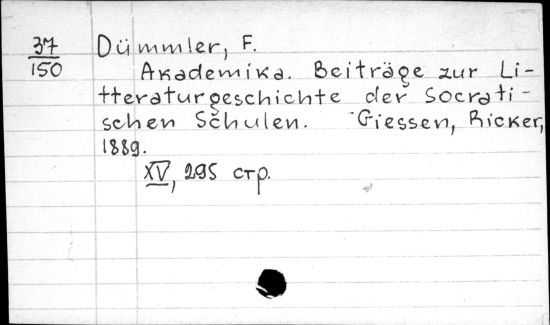 37
150
Dümmler, F.
Akademika. Beiträge zur Li-
tteraturgeschichte der Socrati-
schen Schulen. Giessen, Ricker,
1889.
XV, 295 стр.